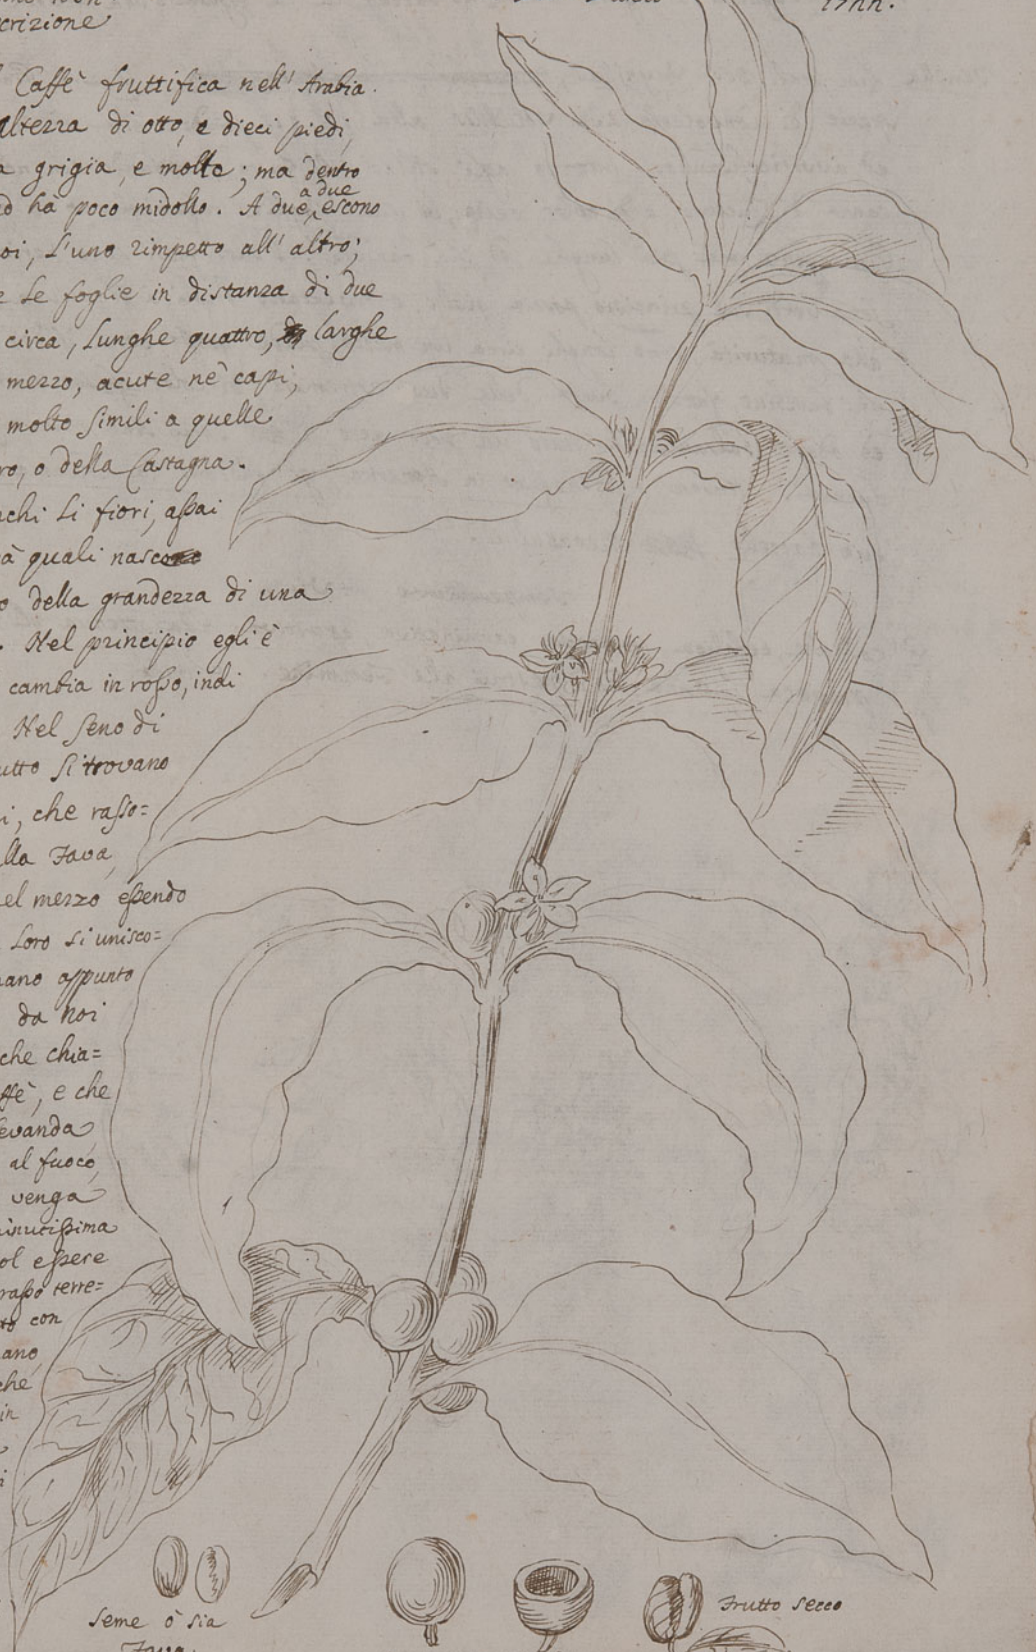 crizione
Caffè fruttifica nell' Arabia.
altezza di otto, e dieci piedi,
grigia, e molle; ma dentro
hà poco midollo. A due, a due escono
oi, L'uno rimpetto all' altro;
Le foglie in distanza di due
circa, Lunghe quattro, larghe
mezzo, acute nè capi,
molto simili a quelle
ro, o della Castagna.
nchi Li fiori, assai
à quali nasco
o della grandezza di una
. Nel principio egli è
cambia in rosso, indi
Nel seno di
utto si trovano
i, che rasso=
lla Fava,
el mezzo essendo
Loro si unisco=
ano appunto
da noi
che chia=
ffè, e che
evanda
al fuoco,
venga
inutissima
ol essere
rasso terre=
to con
ano,
che
in
Seme ò sia
Fava.
Frutto secco